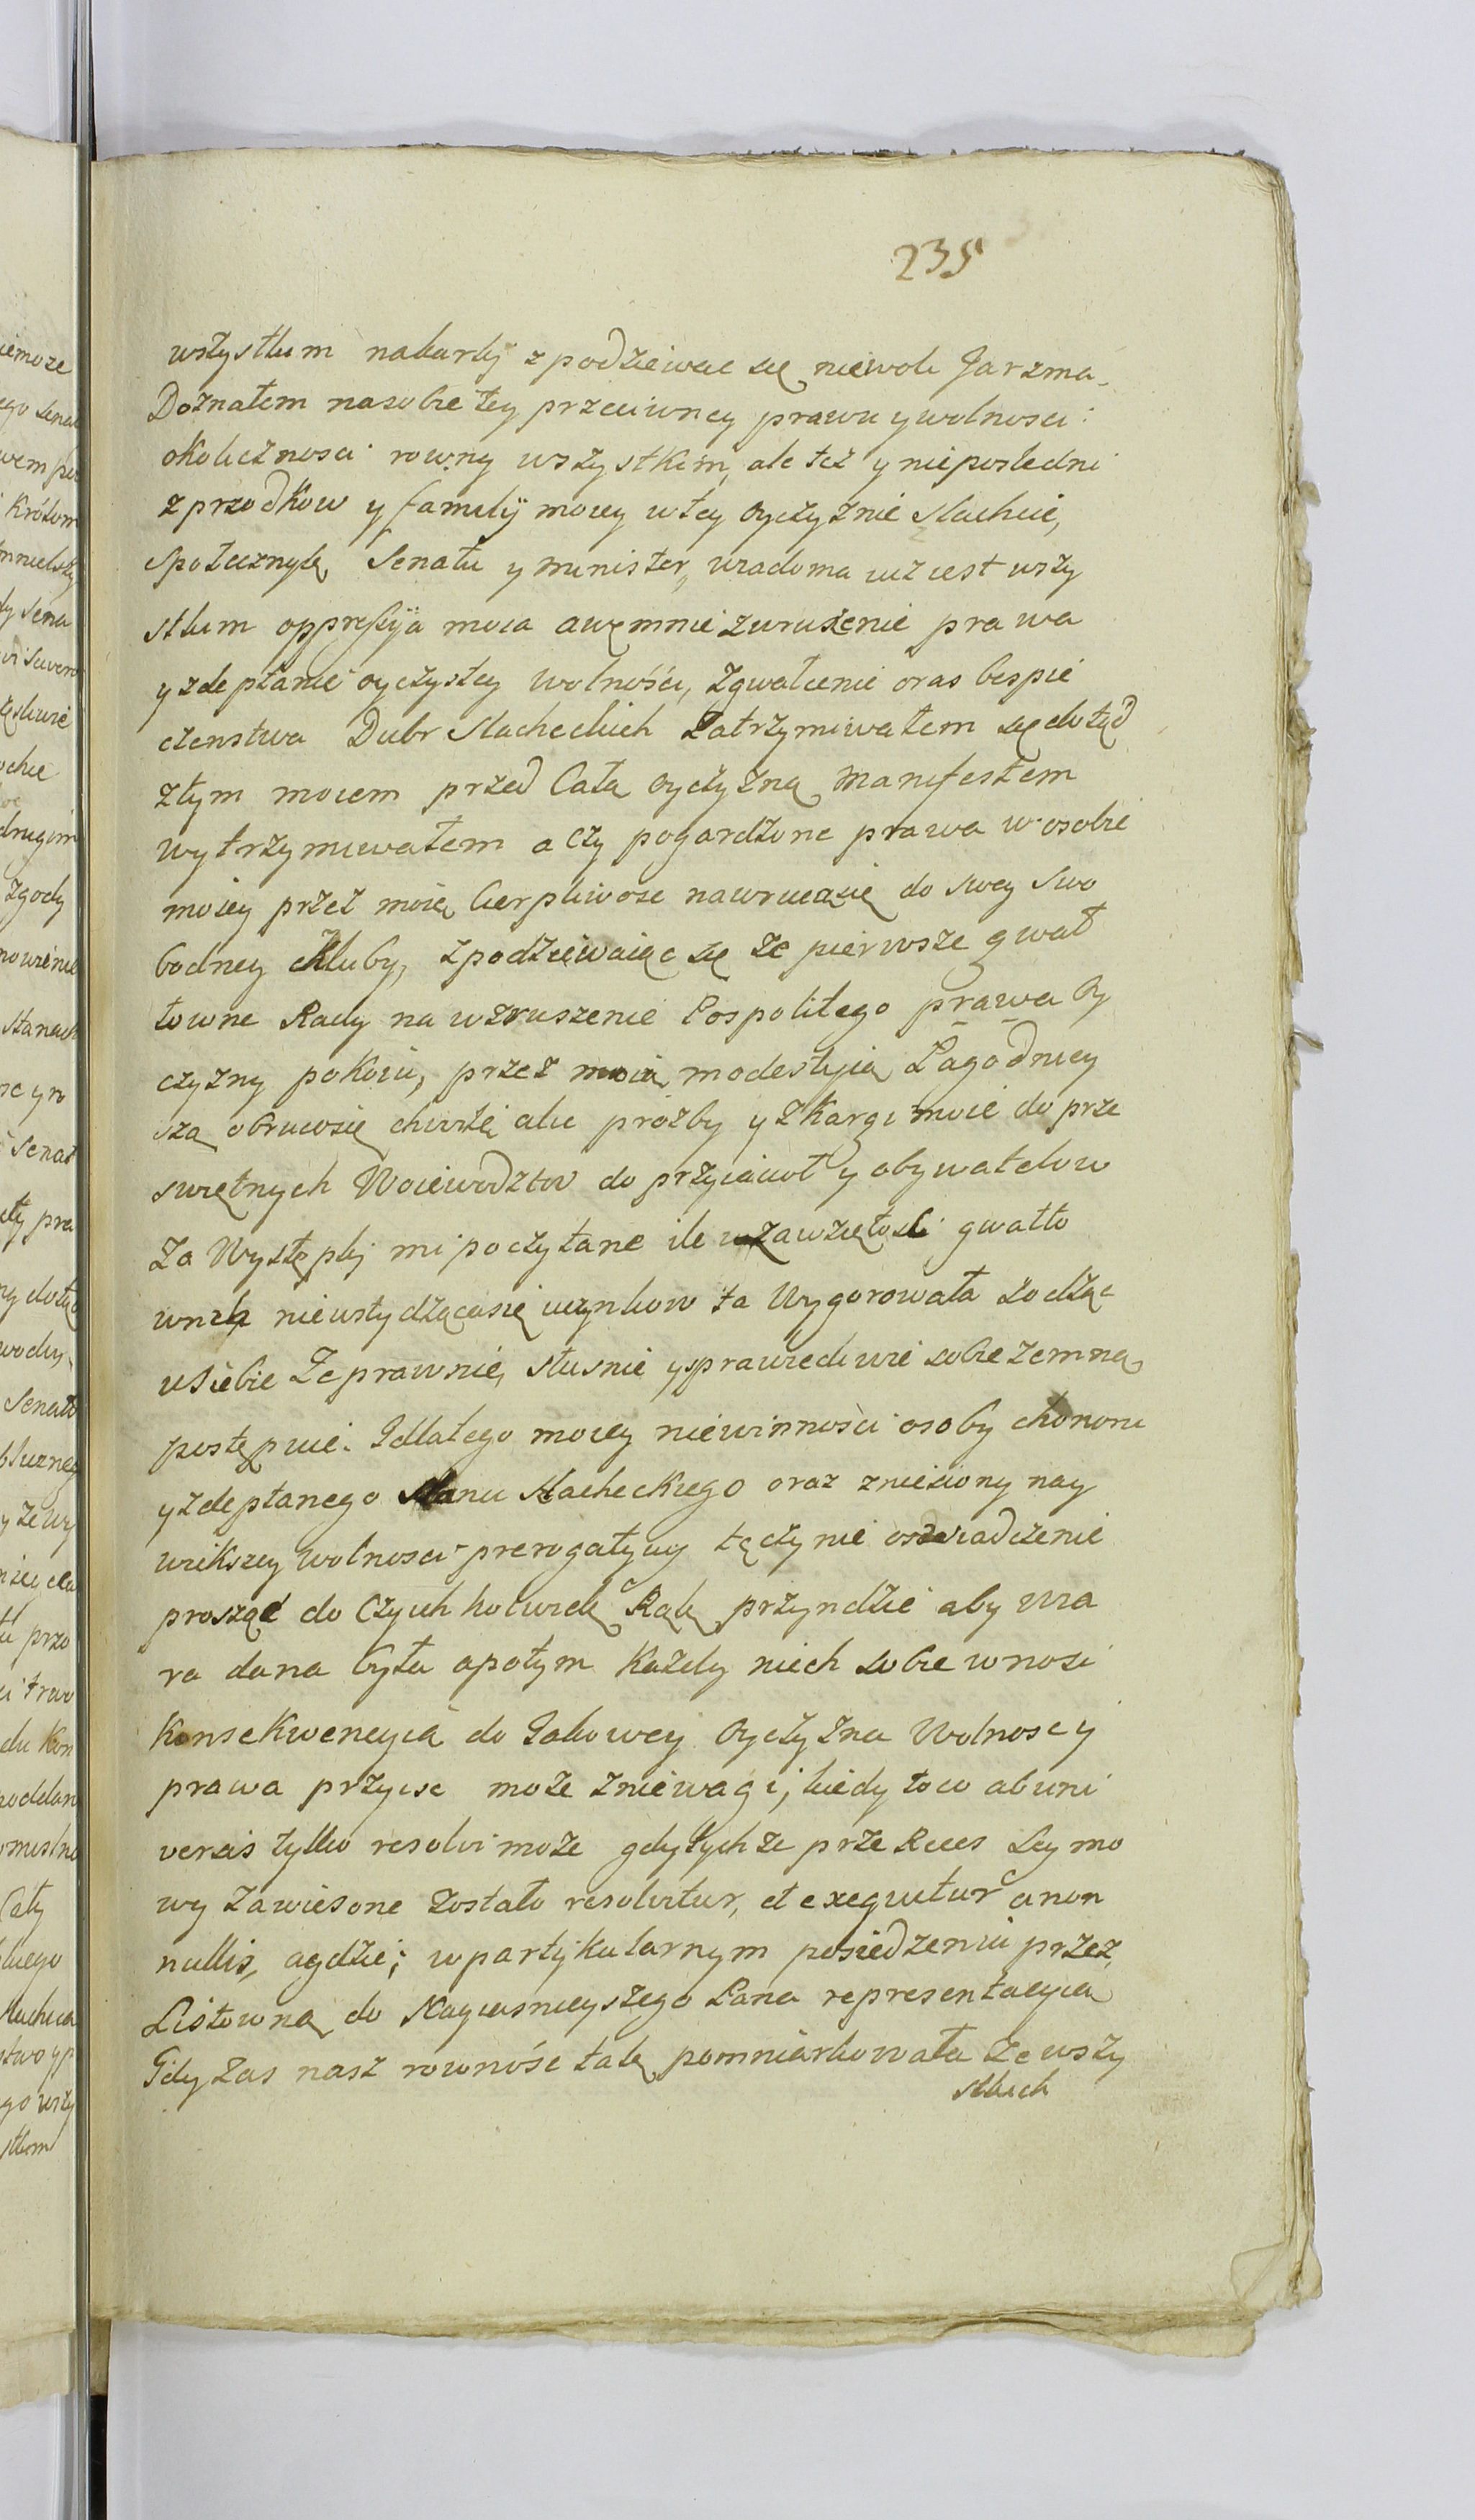 235
wszystkim nakarky zpodziewac się niewoli Jarzma.
Doznałem nasobie tey przeciwney prawu ywolnosci:
okolicznosci rowny wszystkim, ale też y nieposledni
zprzodkow y familÿ moiey wtey oyczyznie slachcic,
Społecznyk Senatu y minister, wiadoma iuż iest wszy
stkim oppressÿa moia awemnie zwruszenie prawa
yzdeptanie oyczystey wolnośći, zgwałcenie oras bespie
czenstwa Dubr slacheckich zatrzymiwałem się dotąd
ztym moiem przed Całą oyczyzną manifestem
wytrzymiewałem a czy pogardzone prawa w osobie
moiey przez moię Cierpliwosc nawrucąsię do swey swo
bodney kluby, zpodziewaiąc się że pierwsze gwał
towne Rady na wzruszenie Pospolitego prawa oy
czyzny pokoiu, przez moią modestyią Łagodniey
szą obrucąsię chwilę alic prozby y zkargi moie do prze
swiętnych Woiewodztw do przyiaciół y obywatelow
za Występki mi poczytane ile wzawziętosci gwałto
wnch niewstydzącasię uczynkow ta Wygorowała sodząc
usiebie Że prawnie, słusnie ysprawiedliwie sobie zemną
postępuie. Jdlatego moiey niewinności osoby ehonoru
yzdeptanego Stanu slacheckiego oraz zniesiony nay
większey wolnosci prerogatywy tę czynie oswiadczenie
prosząc do Czyich kolwiek Rąk przyndzie aby wia
ra dana była apotym Każdy niech sobie wnosi
Konsekwencyia do Jakowey oyczyzna Wolnosc y
prawa przyisc może zniewagi, kiedy to co ab uni
versis tylko resolvi może gdytychże prze Reces Seymo
wy zawiesone zostało resolvitur, et exequitur a non
nullis, agdzie; wpartykularnym posiedzeniu przez
Listowną do Nayiasnieyszego Pana representacyią
Gdy zas nasz rowność tak pomniarkowała że wszy
stkich